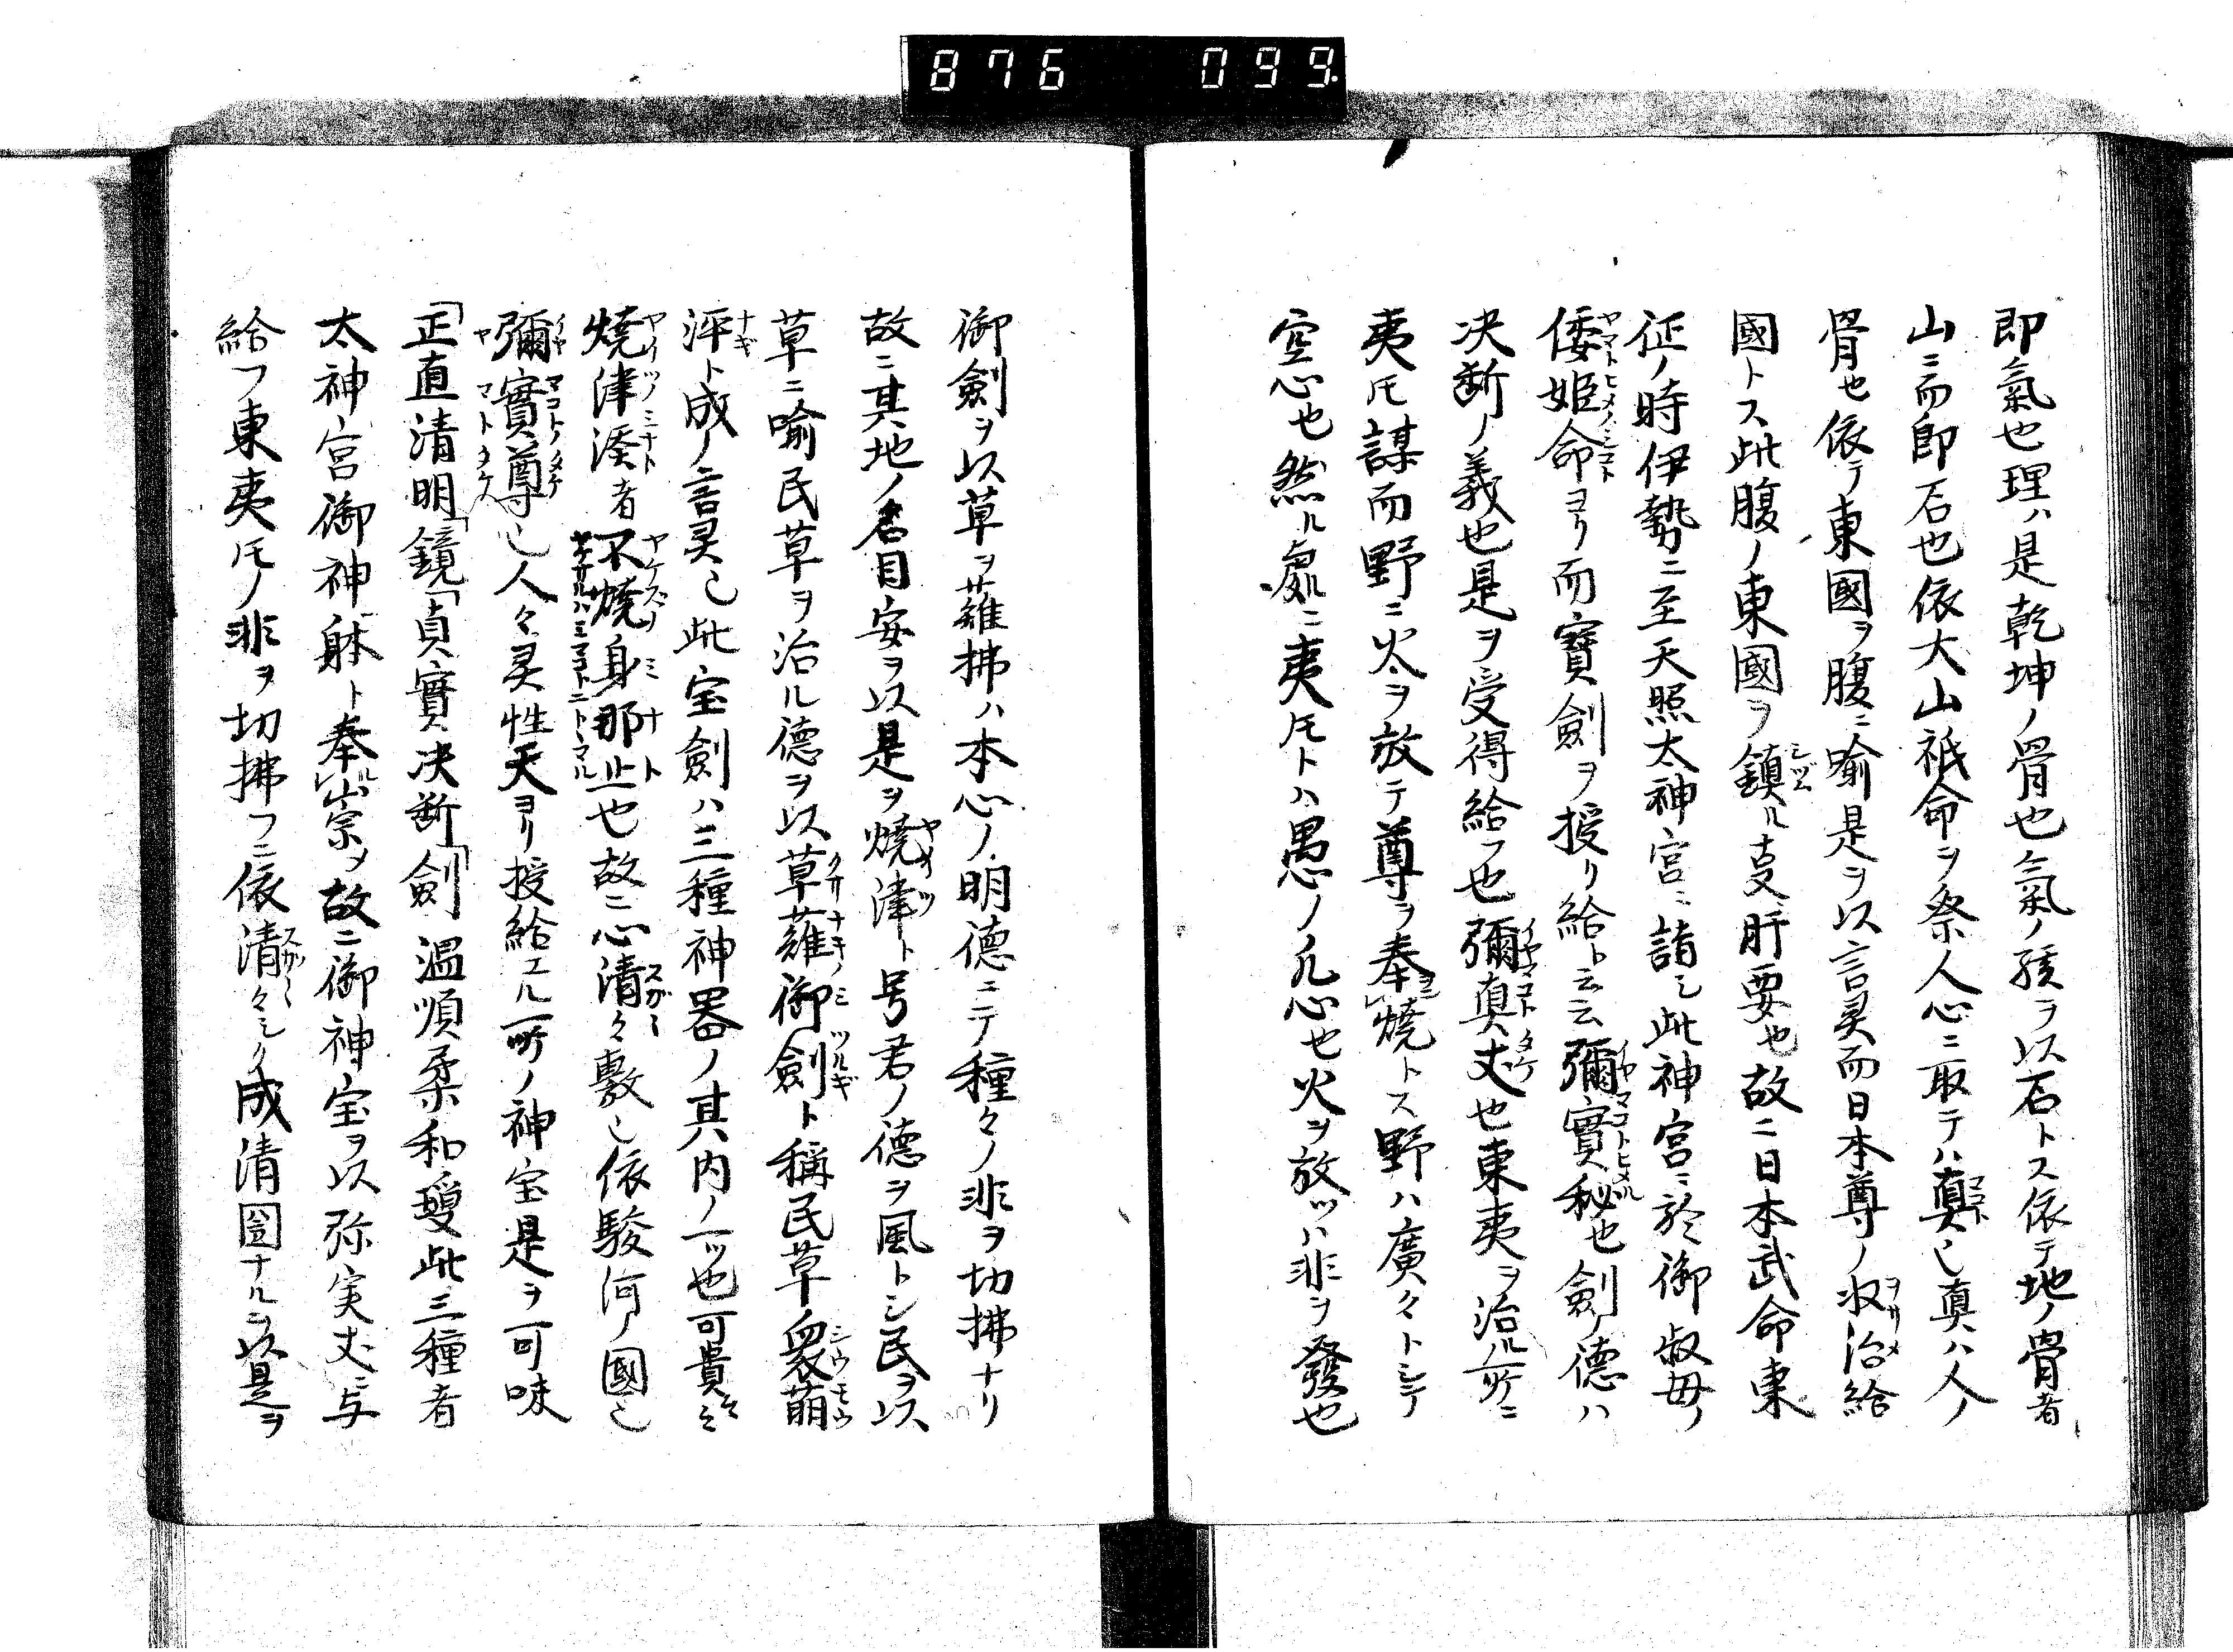 876 099.
即氣也理ハ是乾坤ノ骨也氣ノ孩ヲ以石トス依テ地ノ骨者
山ニ而即石也依大山祇命ヲ祭人心ニ取テハ真乚真ハ人ノ
骨也依テ東國ヲ腹ニ喻是ヲ以言灵而日本尊ノ収治給
國トス此腹ノ東國ヲ鎮ル支肝要也故ニ日本武命東
征ノ時伊勢ニ至天照太神宮ニ詣シ此神宮ニ於御叔母ノ
倭姫命ヨリ而寶劍ヲ授リ給ト云云彌實秘也劍ノ德ハ
決断ノ義也是ヲ受得給フ也彌真丈也東夷ヲ治ル所ニ
夷𪜈謀而野ニ火ヲ放テ尊ヲ奉燒トス野ハ廣々トシテ
空心也然ル處ニ夷𪜈トハ愚ノ凡心也火ヲ放ツハ非ヲ發也
御劍ヲ以草ヲ薙拂ハ本心ノ明德ニテ種々ノ非ヲ切拂ナリ
故ニ其地ノ名目安ヲ以是ヲ燒津ト号君ノ德ヲ風トシ民ヲ以
草ニ喻民草ヲ治ル德ヲ以草薙御劍ト稱民草ノ衆萠
泙ト成ノ言灵乚此宝劍ハ三種神器ノ其内ノ一ッ也可貴々々
燒津湊者不燒身那止也故ニ心清々敷乚依駿河ノ國乚
彌實尊乚人々灵性天ヨリ授給エル所ノ神宝是ヲ可味
「正直清明「鏡「貞實决断「劍 温順柔和璽此三種者
太神宮御神躰ト奉崇メ故ニ御神宝ヲ以弥実丈ニ与
給フ東夷𪜈ノ非ヲ切拂フニ依清々シク成清圀ナルヲ以是ヲ